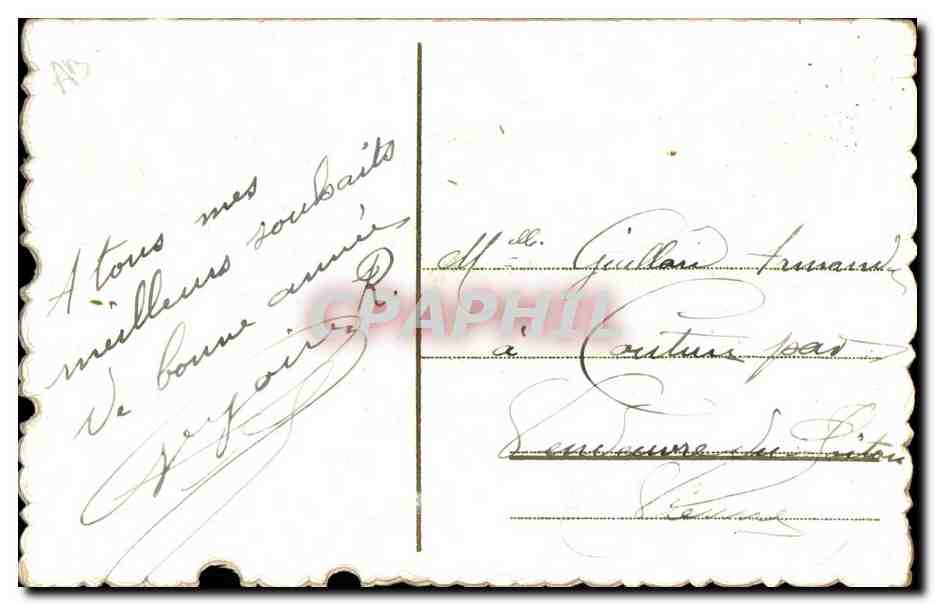 AB
A tous mes
meilleurs souhaits
de bonne année
R.
CPAPHIL
Mlle. Guillon Armande
à Couture par
Vendeuvre du Poitou
Vienne